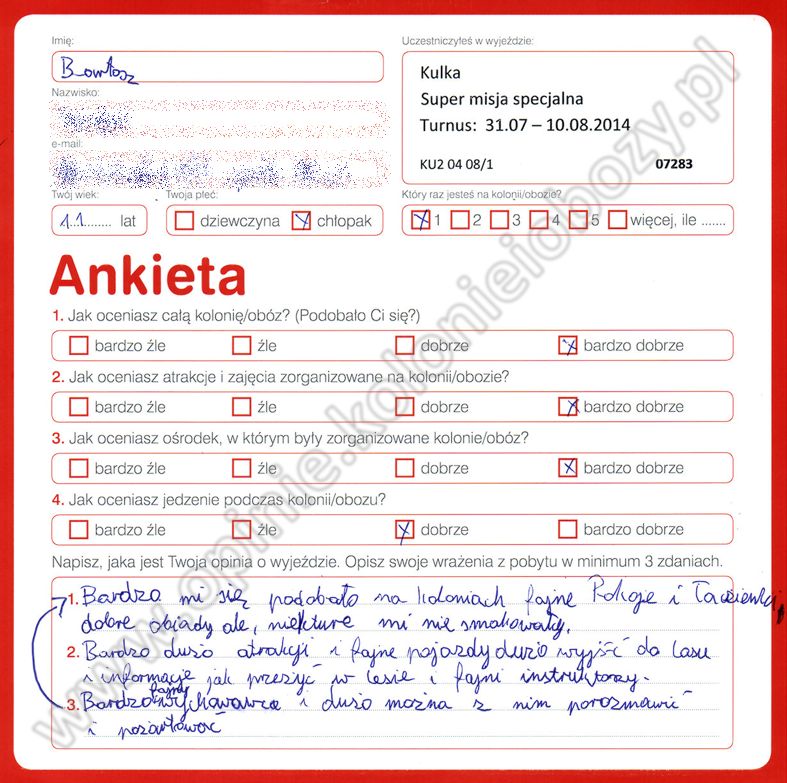 Imię:
Bartosz
Uczestniczyłeś w wyjeździe:
Kulka
Super misja specjalna
Turnus: 31.07 – 10.08.2014
KU2 04 08/1 07283
Nazwisko:
e-mail:
Twój wiek:
11 lat
Twoja płeć:
dziewczyna chłopak
Który raz jesteś na kolonii/obozie?
1 2 3 4 5 więcej, ile .......
Ankieta
1. Jak oceniasz całą kolonię/obóz? (Podobało Ci się?)
bardzo źle źle dobrze bardzo dobrze
2. Jak oceniasz atrakcje i zajęcia zorganizowane na kolonii/obozie?
bardzo źle źle dobrze bardzo dobrze
3. Jak oceniasz ośrodek, w którym były zorganizowane kolonie/obóz?
bardzo źle źle dobrze bardzo dobrze
4. Jak oceniasz jedzenie podczas kolonii/obozu?
bardzo źle źle dobrze bardzo dobrze
Napisz, jaka jest Twoja opinia o wyjeździe. Opisz swoje wrażenia z pobytu w minimum 3 zdaniach.
1. Bardzo mi się podobało na koloniach fajne Pokoje i Łazienki,
dobre obiady ale, niekture mi nie smakowały.
2. Bardzo dużo atrakcji i fajne pojazdy dużo wyjść do lasu
i informacje jak przeżyć w lesie i fajni instruktorzy.
3. Bardzo fajny wychowawca i dużo można z nim porozmawić
i pożartować
www.opinie.kolonieiobozy.pl